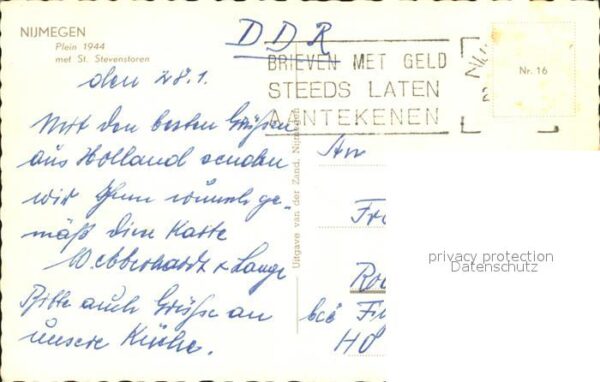 NIJMEGEN
Plein 1944
met St. Stevenstoren
DDR
BRIEVEN MET GELD
STEEDS LATEN
AANTEKENEN
Nr. 16
den 28.1.
Mit den besten Grüßen
aus Holland senden
wir Ihnen wunschge-
mäß diese Karte
W. Ebberhardt & Lange
Bitte auch Grüße an
unsere Küche.
Uitgave van der Zand, Nijmegen
An
Fr
Ro
bei Fi
HO
privacy protection
Datenschutz